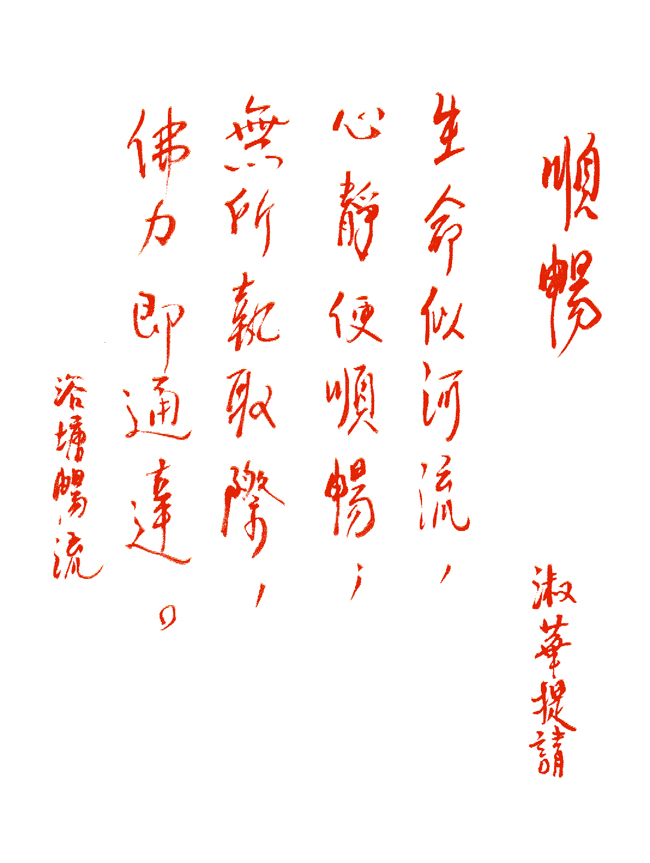 順暢
淑華提請
生命似河流,
心靜便順暢;
無所執取際,
佛力即通達。
浴塘暢流